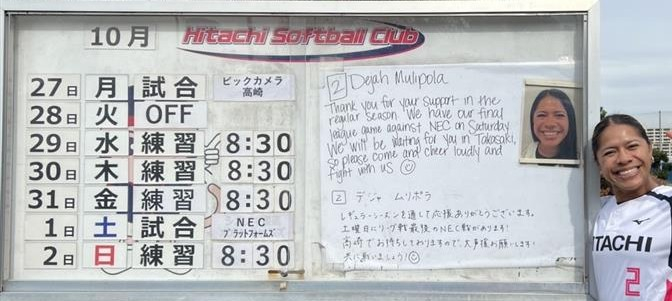 10月
Hitachi Softball Club
27日 月 試合 ビックカメラ
高崎
28日 火 OFF
29日 水 練習 8:30
30日 木 練習 8:30
31日 金 練習 8:30
1日 土 試合 NEC
プラットフォームズ
2日 日 練習 8:30
2 Dejah Mulipola
Thank you for your support in the
regular season. We have our final
league game against NEC on Saturday.
We will be waiting for you in Takasaki,
so please come and cheer loudly and
fight with us
2 デジャ ムリポラ
レギュラーシーズンを通して応援ありがとうございます。
土曜日にリーグ戦最後のNEC戦があります!
高崎でお待ちしておりますので、大声援お願いします!
共に戦いましょう!
HITACHI
2